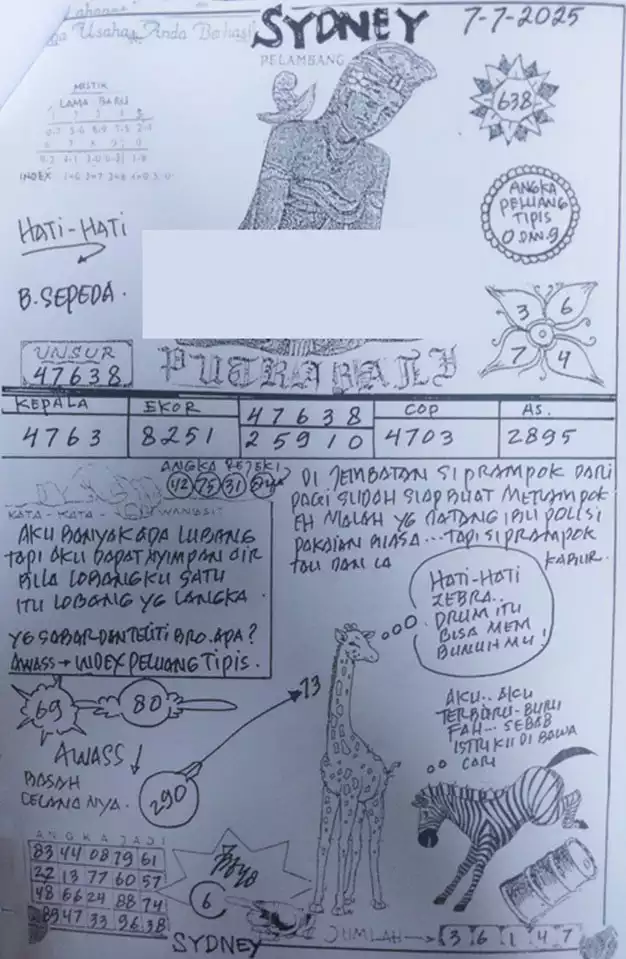 Usaha Anda Berhasil
SYDNEY
7-7-2025
PELAMBANG
MISTIK
LAMA BARU
INDEX
638
ANGKA
PELUANG
TIPIS
0 DAN 9
HATI-HATI
B. SEPEDA.
3 6
7 4
UNSUR
47638
PUTRA BALI
KEPALA EKOR 47638 COP AS.
4763 8251 25910 4703 2895
ANGKA REJEKI
42 75 31
KATA - KATA - WANGSIT
AKU BANYAK ADA LUBANG
TAPI AKU DAPAT NYIMPAN AIR
BILA LOBANGKU SATU
ITU LOBANG YG LANGKA
YG SABAR DAN TELITI BRO. APA?
AWASS → INDEX PELUANG TIPIS.
DI JEMBATAN SI PRAMPOK DARI
PAGI SUDAH SIAP BUAT MERAMPOK
EH MALAH YG DATANG IBU POLISI
PAKAIAN BIASA... TAPI SI PRAMPOK
TAU DAN LA
KABUR.
HATI-HATI
ZEBRA..
DRUM ITU
BISA MEM
BUNUHMU!
69 80
73
AKU.. AKU
TERBURU-BURU
FAH... SEBAB
ISTRIKU DI BAWA
CARI
AWASS ↓
BASAH
CELANANYA.
290
ANGKA JADI
83 44 08 79 61
22 13 77 60 57
48 66 24 88 74
89 47 33 96 38
6
JUMLAH → 3 6 1 4 7
SYDNEY